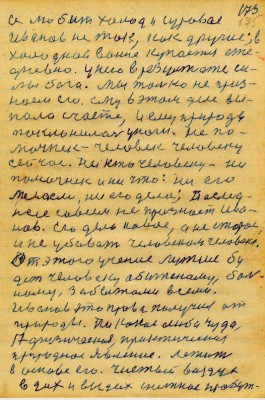 173
а любит холод и суровое
Иванов не так, как другие, в
холодной ванне купается еже-
дневно. У него в результате си-
лы бога. Мы только не приз-
наем его. Ему в этом деле вы-
пало счастье, и ему природа
поклонилась у ноги. Не по-
мощник человек человеку
сейчас. Ни кто человеку - ни
помощник и ни что: ни его
тело, ни его дела. Послед-
нее совсем не признает Ива-
нов. Его дело новое, а не старое,
и не убивать человеком человека.
От этого учение лучшее бу
дет человеку обиженному, боль
ному, забытому всеми.
Иванов это право получил от
природы. Не какое либо чудо,
а физическое, практическое
природное явление. Лежит
в основе его. Чистый воздух
вдох и выдох снежное пробуж-